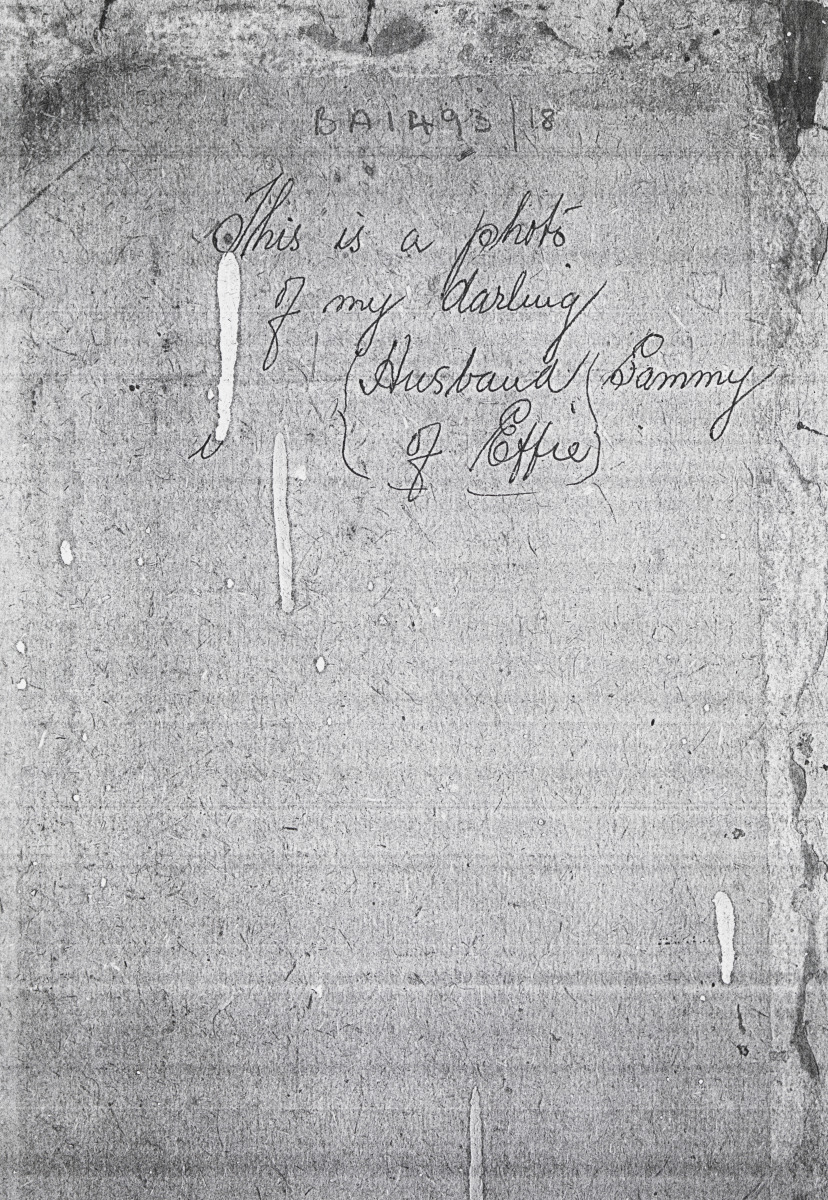 BA1493/18
This is a photo
of my darling
{Husband { Sammy
of Effie}